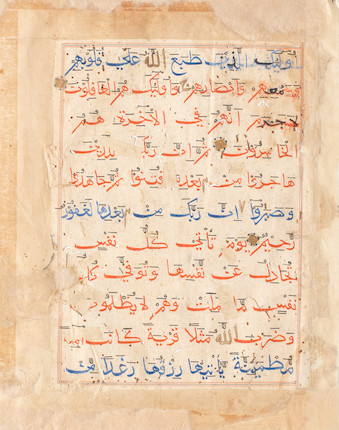 أولئك الذين طبع الله على قلوبهم
وسمعهم وأبصارهم وأولئك هم الغافلون
لا جرم أنهم في الآخرة هم
الخاسرون ثم إن ربك للذين
هاجروا من بعد ما فتنوا ثم جاهدوا
وصبروا إن ربك من بعدها لغفور
رحيم يوم تأتي كل نفس
تجادل عن نفسها وتوفى كل
نفس ما عملت وهم لا يظلمون
وضرب الله مثلا قرية كانت آمنة
مطمئنة يأتيها رزقها رغدا من